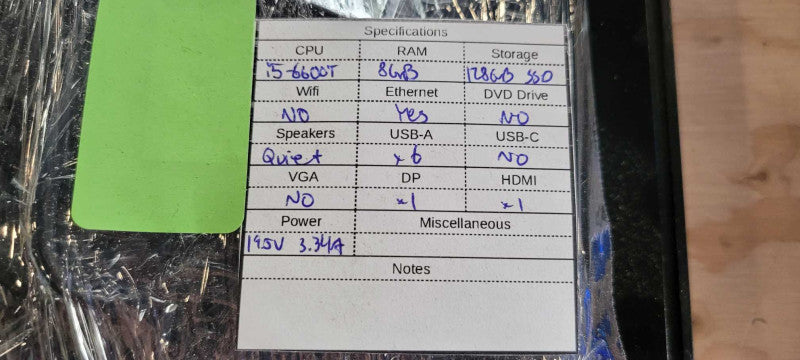 Specifications
CPU RAM Storage
i5-6600T 8GB 128GB SSD
Wifi Ethernet DVD Drive
NO Yes NO
Speakers USB-A USB-C
Quiet x6 NO
VGA DP HDMI
NO x1 x1
Power Miscellaneous
19.5V 3.34A
Notes